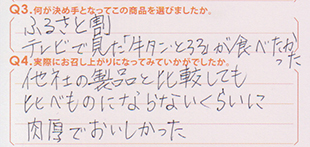 Q3.何が決め手となってこの商品を選びましたか。
ふるさと割
テレビで見た「牛タンとろろ」が食べたかった
Q4.実際にお召し上がりになってみていかがでしたか。
他社の製品と比較しても
比べものにならないくらいに
肉厚でおいしかった